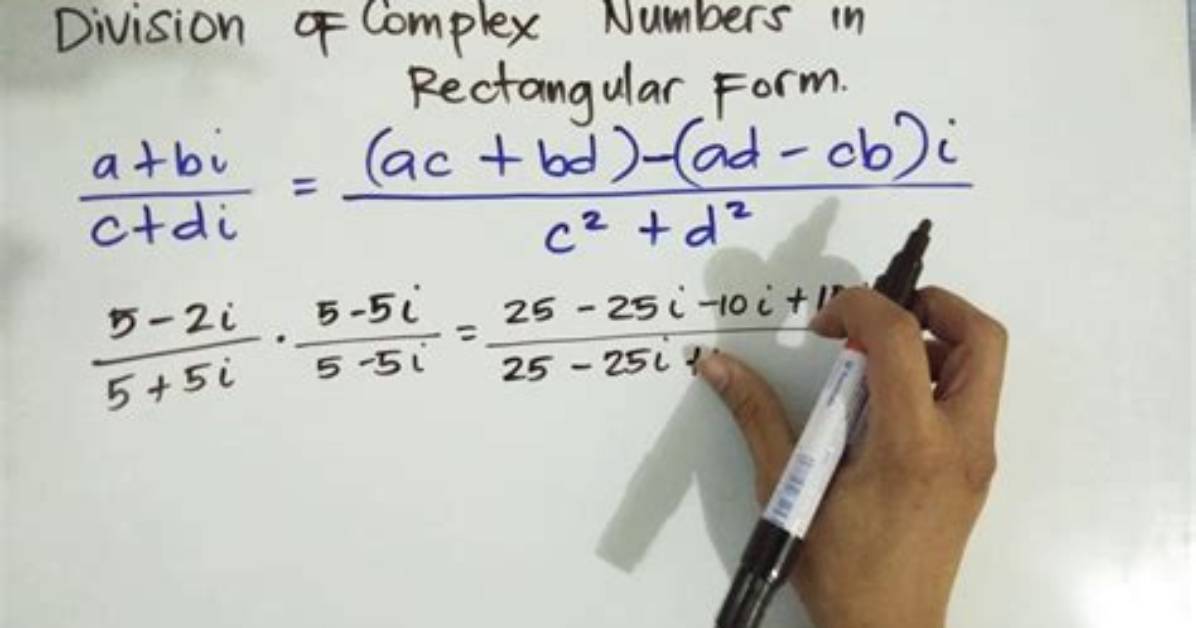 Division of Complex Numbers in
Rectangular Form.
a+bi / c+di = (ac + bd)-(ad - cb)i / c² + d²
5-2i / 5+5i · 5-5i / 5-5i = 25 - 25i -10i + / 25 - 25i +